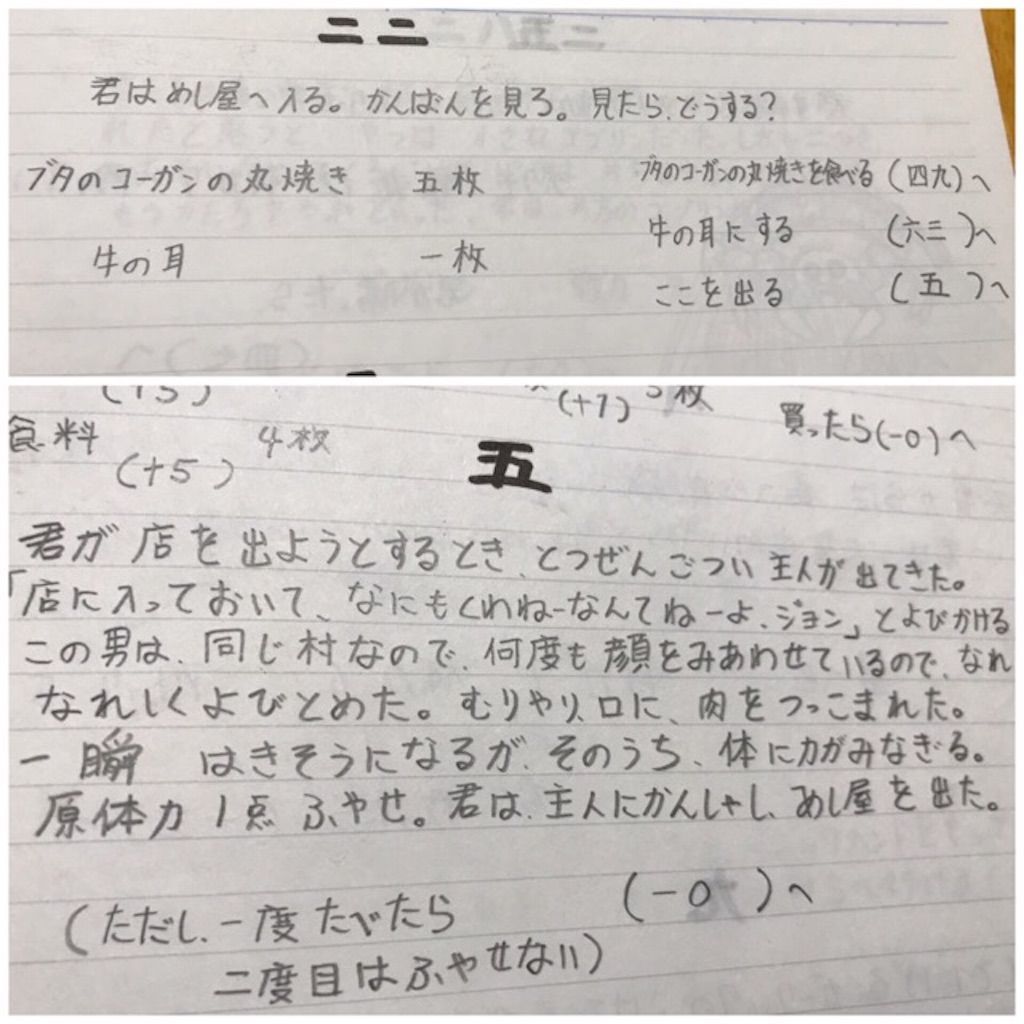 二二
君はめし屋へ入る。かんばんを見ろ。見たら、どうする?
ブタのコーガンの丸焼き 五枚 ブタのコーガンの丸焼きを食べる(四九)へ
牛の耳 一枚 牛の耳にする (六三)へ
ここを出る (五)へ
(+5) (+1) 5枚
食料 (+5) 4枚 買ったら(一0)へ
五
君が店を出ようとするとき、とつぜんごつい主人が出てきた。
「店に入っておいて、なにもくわねーなんてねーよ、ジョン」とよびかける
この男は、同じ村なので、何度も顔をみあわせているので、なれ
なれしくよびとめた。むりやり、口に、肉をつっこまれた。
一瞬 はきそうになるが、そのうち、体に力がみなぎる。
原体力1点ふやせ。君は、主人にかんしゃし、めし屋を出た。
(一0)へ
(ただし、一度たべたら
二度目はふやせない)